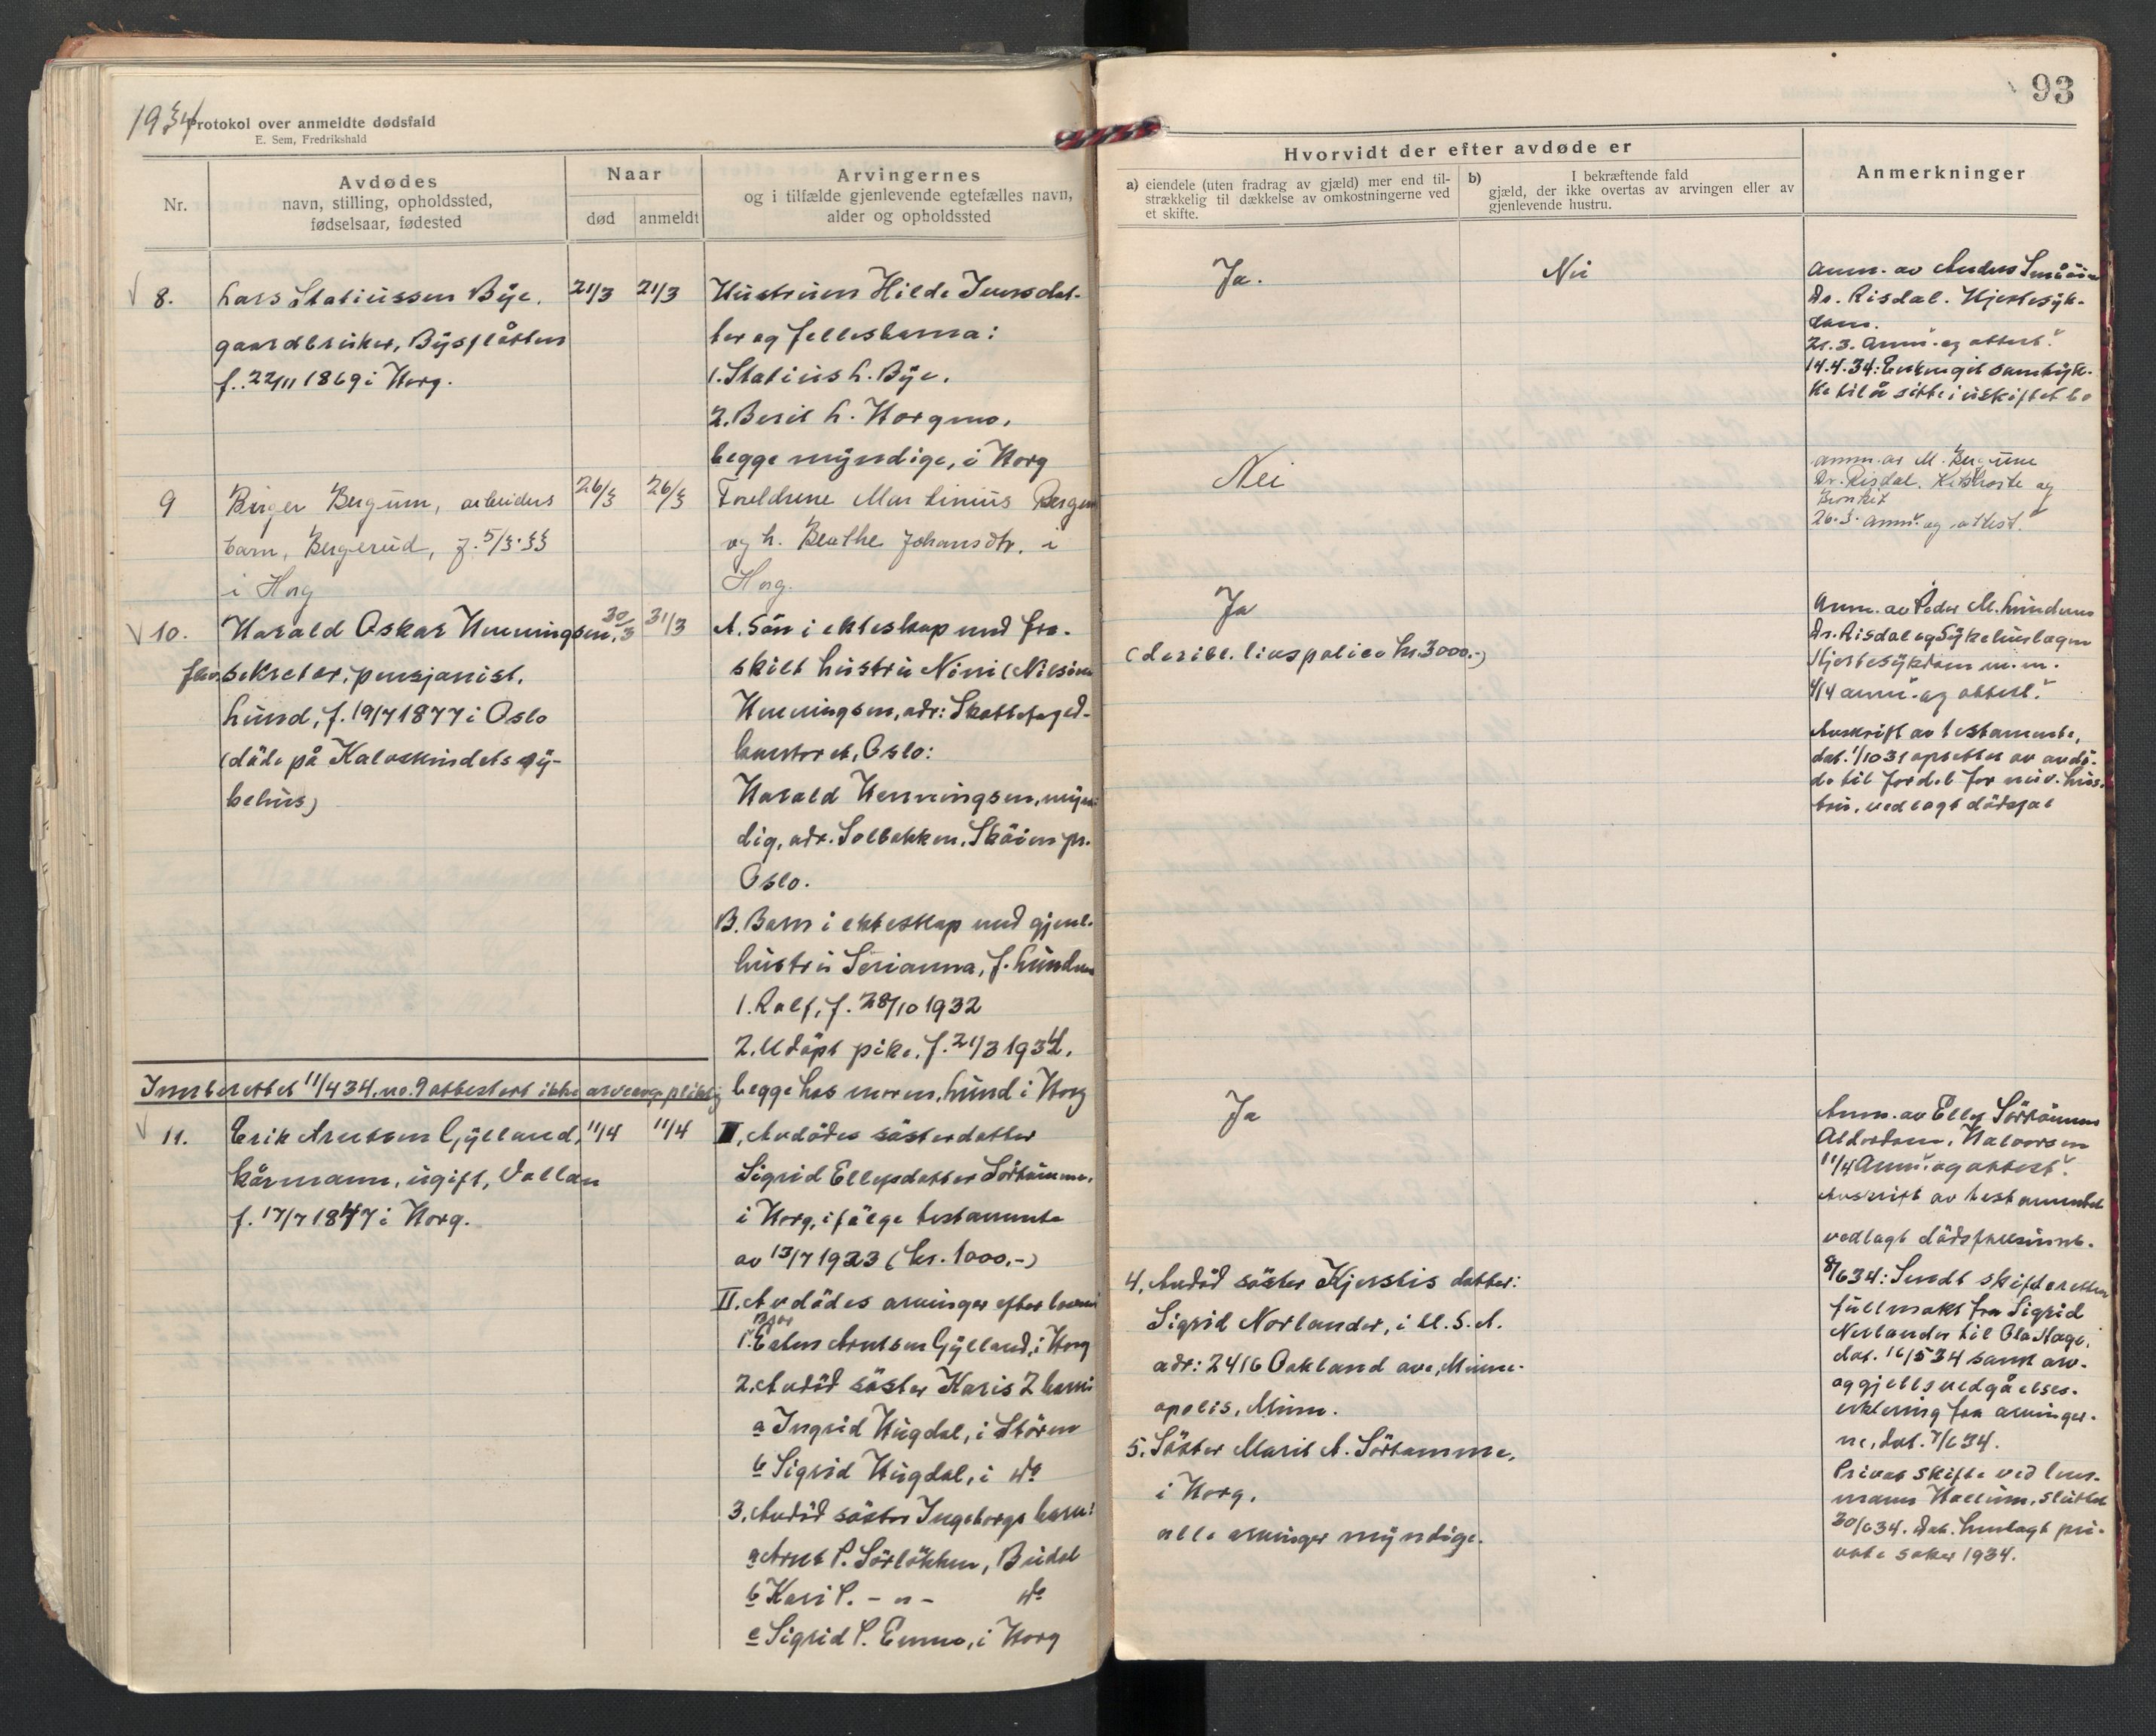 1934
Protokol over anmeldte dødsfald
E. Sem, Fredrikshald
Nr.
Avdødes
navn, stilling, opholdssted,
fødselsaar, fødested
Naar
død
anmeldt
Arvingernes
og i tilfælde gjenlevende egtefælles navn,
alder og opholdssted
8.
Lars Statiussen Bye.
gaardbruker, Byspløtten
f. 22/11 1869 i Horg.
21/3
21/3
Hustruen Hilde Iversdat-
ter og fellesbarna:
1. Statius L. Bye.
2. Berit L. Horgmo,
begge myndige, i Horg
9
Birger Bergum, arbeiders
barn, Bergerud, f. 5/3.33
i Horg
26/3
26/3
Foreldrene Martinius Bergum
og h. Beathe Johansdtr. i
Horg.
10.
Harald Oskar Henningsen,
fhv. sekretær, pensjonist.
Lund, f. 19/7 1877 i Oslo
(døde på Kalvskindets sy-
kehus)
30/3
31/3
A. Søn i ekteskap med fra-
skilt hustru Nini (Nilsine
Henningsen, adr: Skattefoged-
kontoret, Oslo:
Harald Henningsen, myn-
dig, adr. Solbakken, Skøien pr.
Oslo.
B. Barn i ekteskap med gjenl.
hustru Serianna, f. Lundem
1. Ralf, f. 28/10 1932
2. Udøpt pike, f. 21/3 1934.
begge hos moren, Lund i Horg
Innberettet 11/4 34. no. 9 attestert ikke arveavg. pliktig
11.
Erik Arntsen Gylland,
kårmann, ugift, Vollan
f. 17/7 1847 i Horg.
11/4
11/4
I, Avdødes søsterdatter
Sigrid Ellefsdatter Sørtømme,
i Horg, ifølge testamente
av 13/7 1923 (kr. 1000.-)
II. Avdødes arvinger efter loven:
1. Bror Esten Arntsen Gylland, i Horg
2. Avdød søster Karis 2 barn:
a Ingrid Hugdal, i Støren
b Sigrid Hugdal, i do
3. Avdød søster Ingeborgs barn:
a Arnt P. Sørløkken, Budal
b Kari P. - " - do
c Sigrid P. Enmo, i Horg
93
Hvorvidt der efter avdøde er
a) eiendele (uten fradrag av gjæld) mer end til-
strækkelig til dækkelse av omkostningerne ved
et skifte.
b) I bekræftende fald
gjæld, der ikke overtas av arvingen eller av
gjenlevende hustru.
Anmerkninger
Ja.
Nei
Anm. av Anders Småøien
Dr. Risdal. Hjertesyk-
dom.
21.3. Anm. og attest.
14.4.34: Enken git samtyk-
ke til å sitte i uskiftet bo
Nei
anm. av M. Bergum
Dr. Risdal. Kikhoste og
Bronkit
26.3. anm. og attest.
Ja
(deribl. livspolice kr. 3000.-)
Anm. av Peder M. Lundemo
Dr. Risdal og Sykehuslægen
Hjertesykdom m. m.
4/4 anm. og attest.
Avskrift av testamente,
dat. 1/10 31 oprettet av avdø-
de til fordel for nuv. hus-
tru, vedlagt dødsfal
Ja
Anm. av Ellef Sørtømme
Alderdom, Halvorsen
11/4 Anm. og attest.
Avskrift av testamentet
vedlagt dødsfallsanm.
8/6 34: Sendt skifteretten
fullmakt fra Sigrid
Norlander til Ola Hage,
dat. 16/5 34 samt arv-
og gjeldsvedgåelses-
erklæring fra arvinger-
ne, dat. 7/6 34.
Privat skifte ved lens-
mann Hollum, sluttet
30/6 34. Dok. henlagt pri-
vate saker 1934.
4. Avdød søster Kjerstis datter:
Sigrid Norlander, i U.S.A.
adr: 2416 Oakland ave, Minne-
apolis, Minn.
5. Søster Marit A. Sørtømme,
i Horg.
alle arvinger myndige.